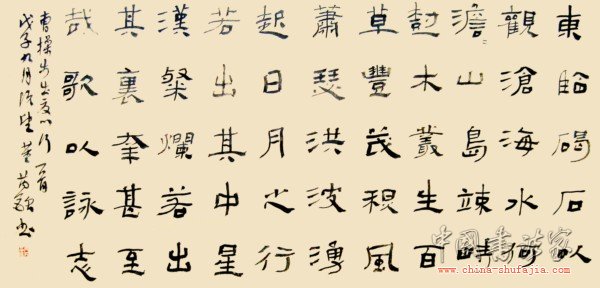 東臨碣石以
觀滄海水何
澹山島竦峙
尌木叢生百
草豐茂秋風
蕭瑟洪波湧
起日月之行
若出其中星
漢粲爛若出
其裏幸甚至
哉歌以詠志
曹操步出夏門行一首
戊子九月
中国书法家
www.china-shufajia.com